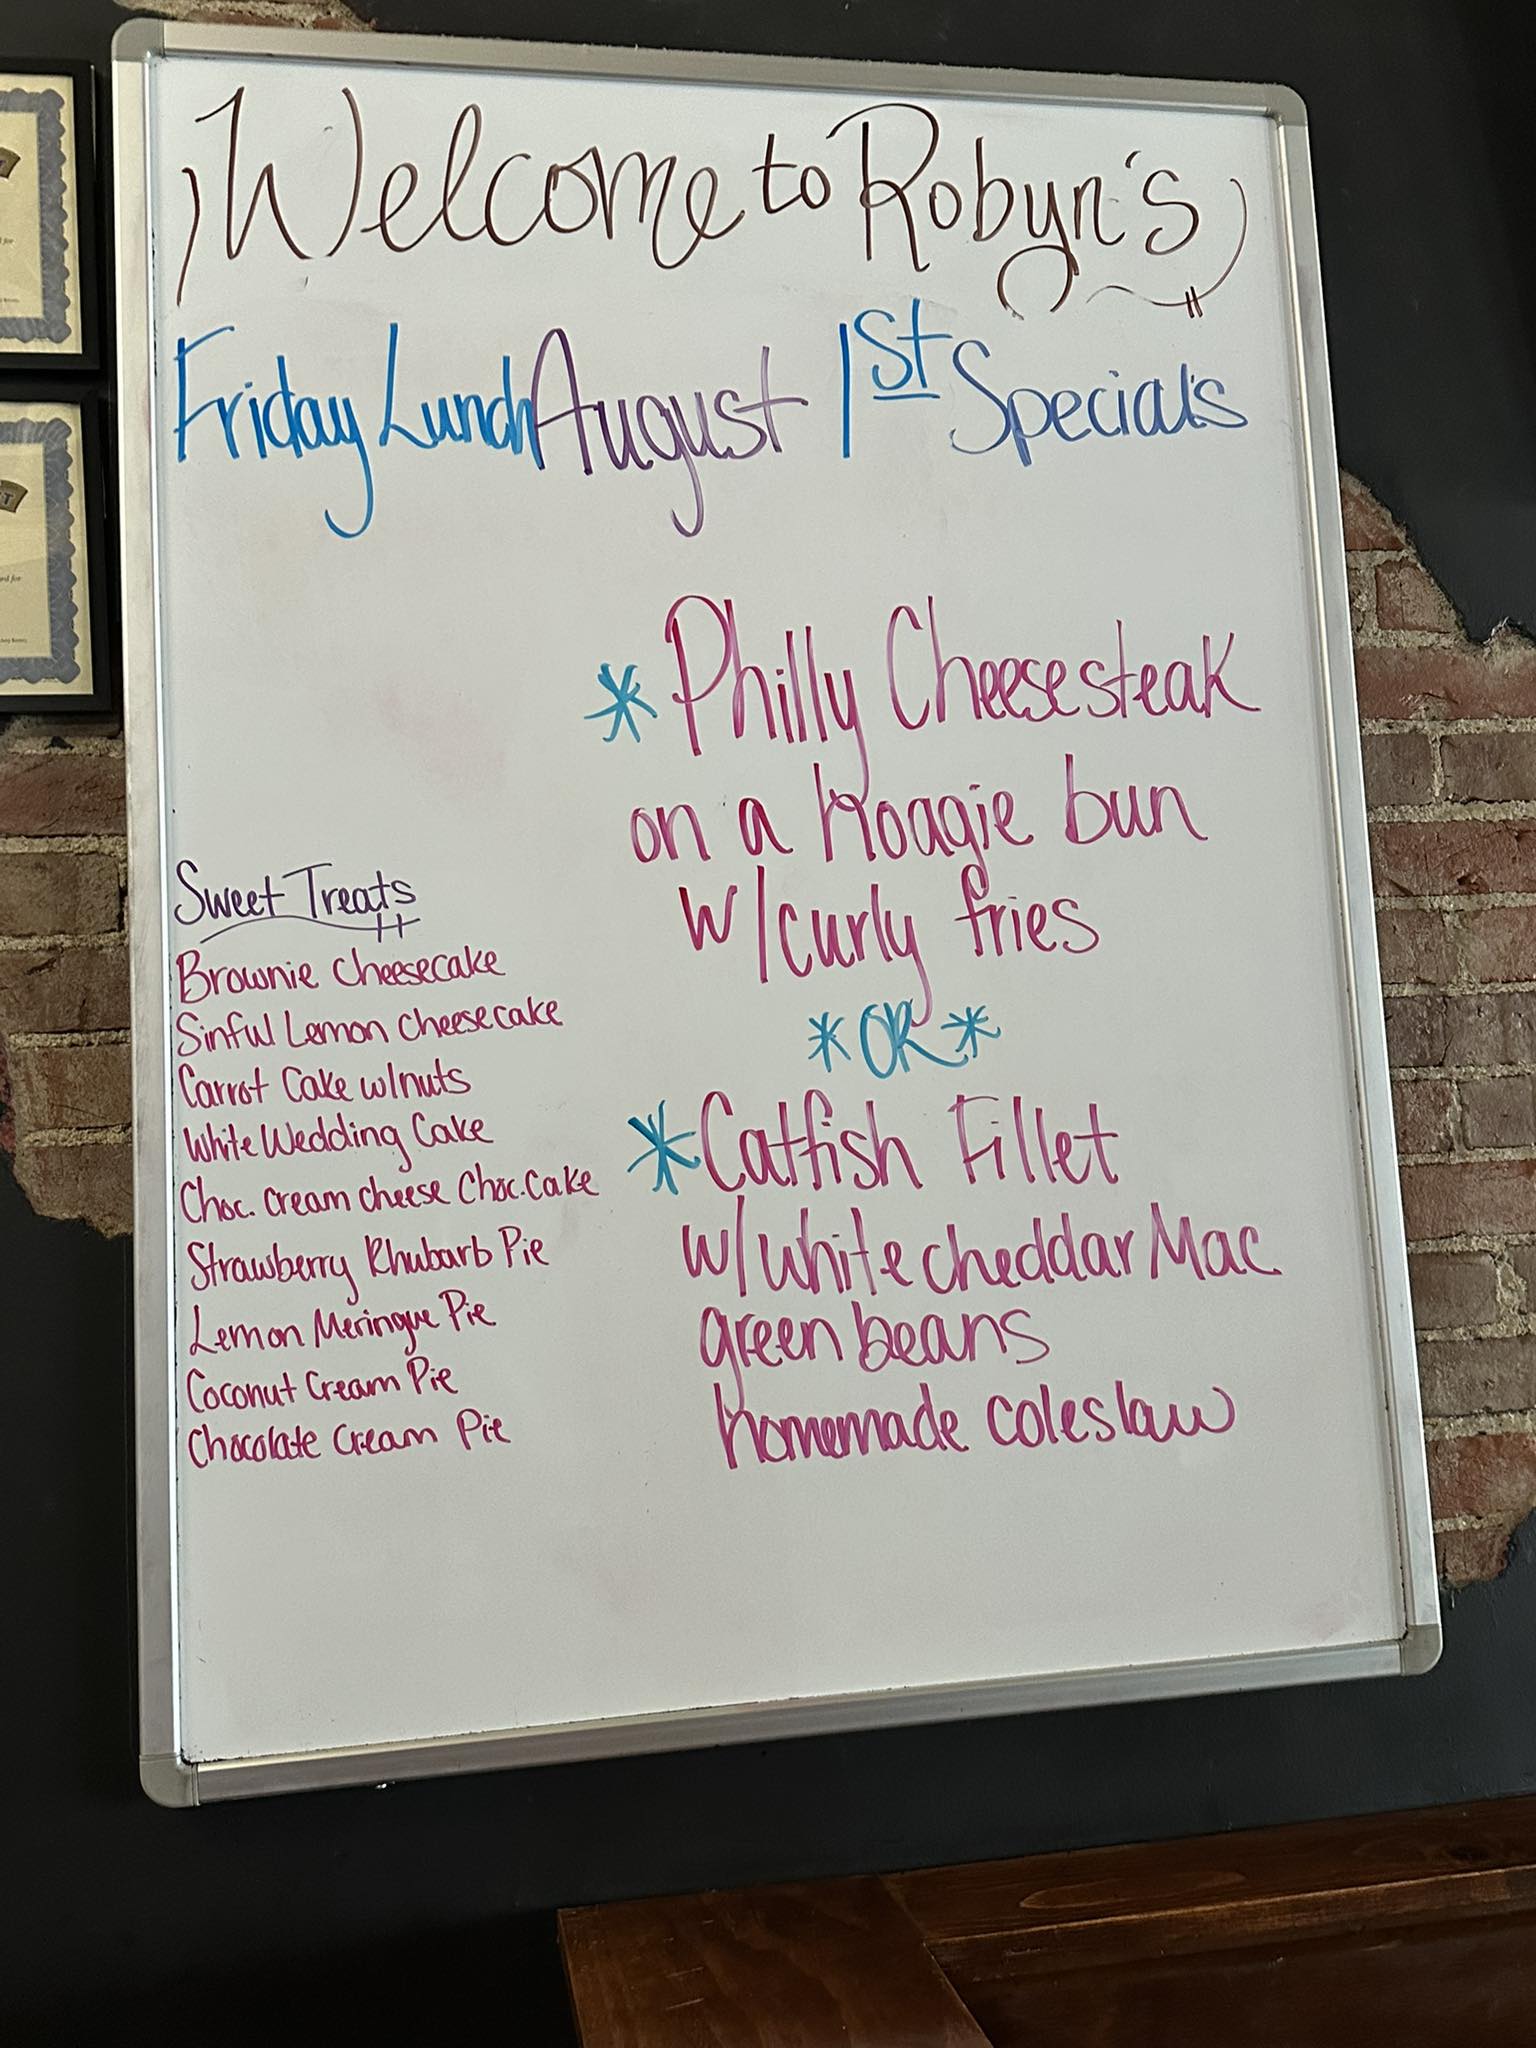 Welcome to Robyn's
Friday Lunch August 1st Specials
*Philly Cheesesteak
on a hoagie bun
w/curly fries
*OR*
*Catfish Fillet
w/white cheddar Mac
green beans
homemade coleslaw
Sweet Treats
Brownie Cheesecake
Sinful Lemon Cheesecake
Carrot Cake w/nuts
White Wedding Cake
Choc. Cream cheese Choc. Cake
Strawberry Rhubarb Pie
Lemon Meringue Pie
Coconut Cream Pie
Chocolate Cream Pie